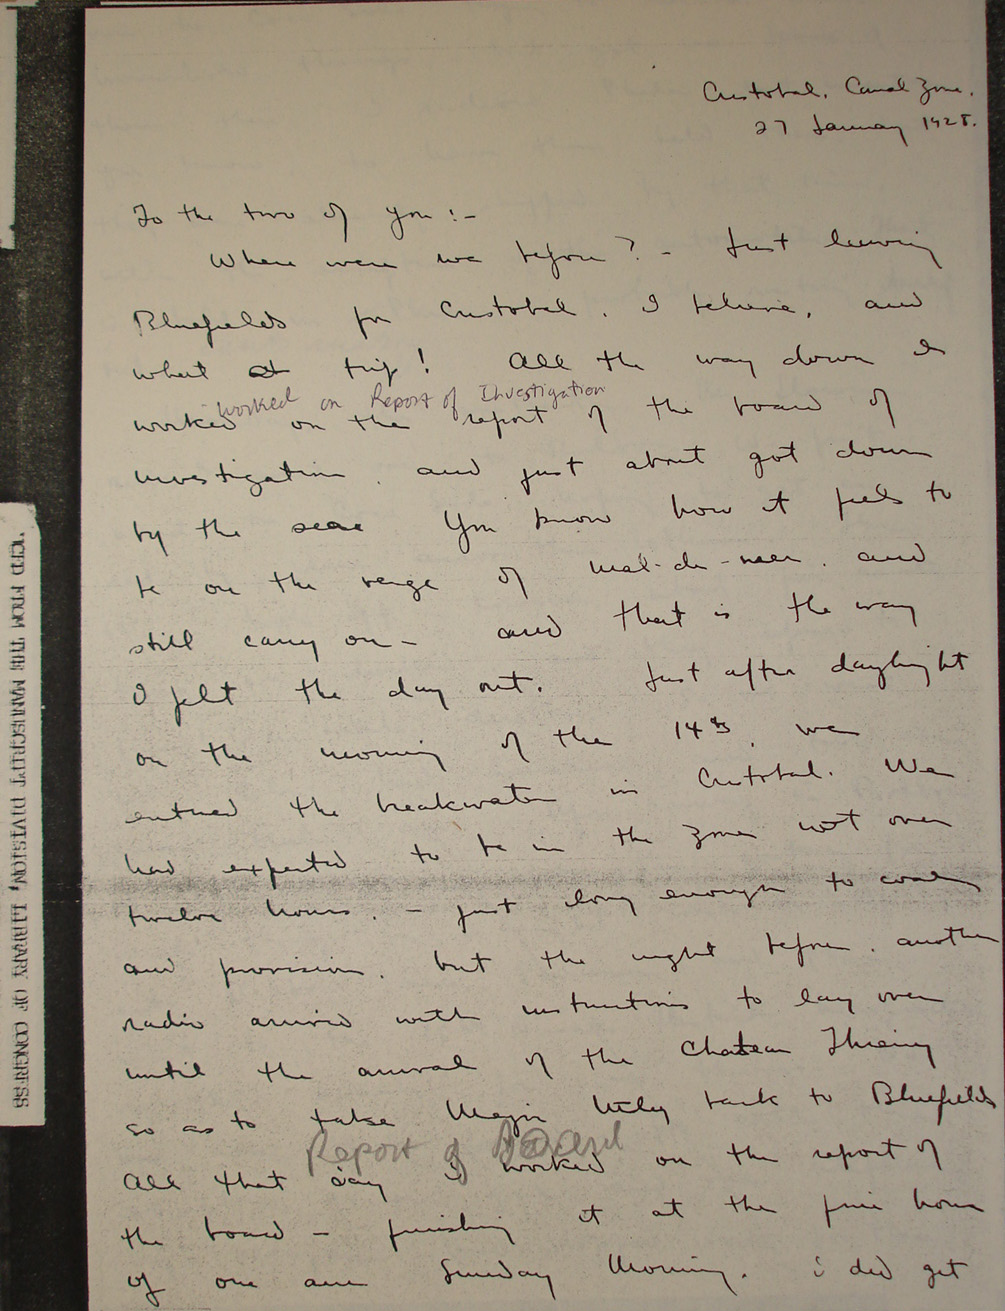 Cristobal, Canal Zone.
27 January 1928.
To the two of you:-
Where were we before? - Just leaving
Bluefields for Cristobal, I believe, and
what a trip! All the way down I
worked on Report of Investigation
worked on the report of the board of
investigation, and just about got down
by the sea. You know how it feels to
be on the verge of mal-de-mer, and
still carry on - and that is the way
I felt the day out. Just after daylight
on the morning of the 14th, we
entered the breakwater in Cristobal. We
had expected to be in the Zone not over
twelve hours, - just long enough to coal
and provision, but the night before, another
radio arrived with instructions to lay over
until the arrival of the Chateau Thierry
so as to take Major Utley back to Bluefields
Report of Board
All that day I worked on the report of
the board - finishing it at the hour
of one am Sunday Morning. I did get
'ICED FROM THE MANUSCRIPT DIVISION, LIBRARY OF CONGRESS